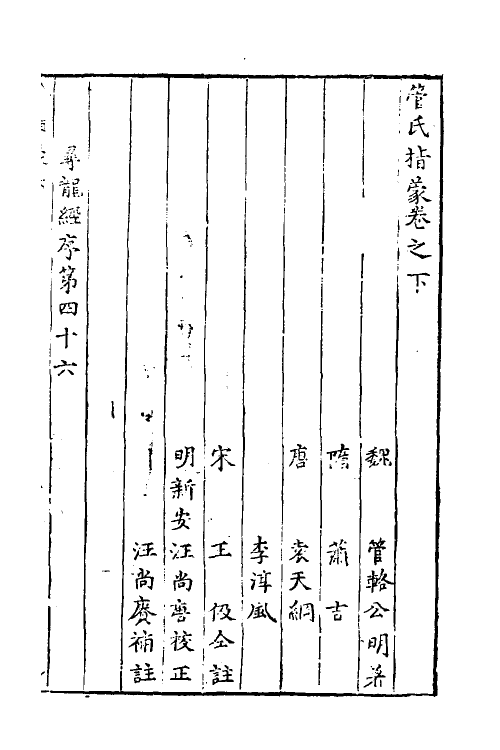 管氏指蒙卷之下
魏 管輅公明著
隋 蕭吉
唐 袁天綱
李淳風
宋 王伋仝註
明新安汪尚賡校正
汪尚賡補註
尋龍經序第四十六